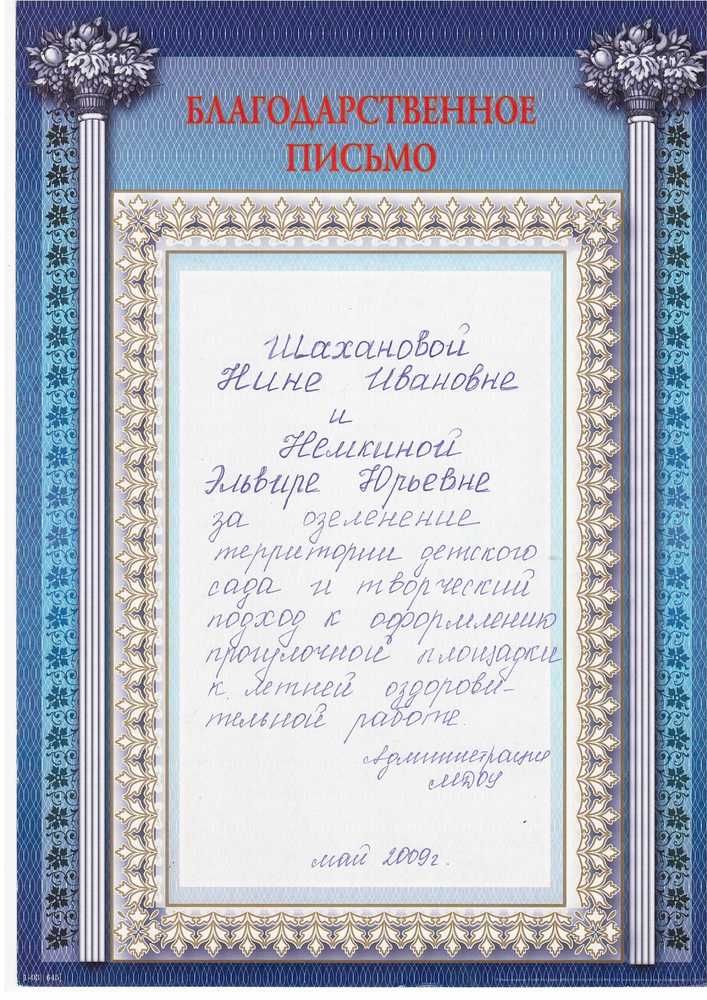 БЛАГОДАРСТВЕННОЕ
ПИСЬМО
Шахановой
Нине Ивановне
и
Немкиной
Эльвире Юрьевне
за озеленение
территории детского
сада и творческий
подход к оформлению
прогулочной площадки
к летней оздорови-
тельной работе.
Администрация
МДОУ
май 2009г.